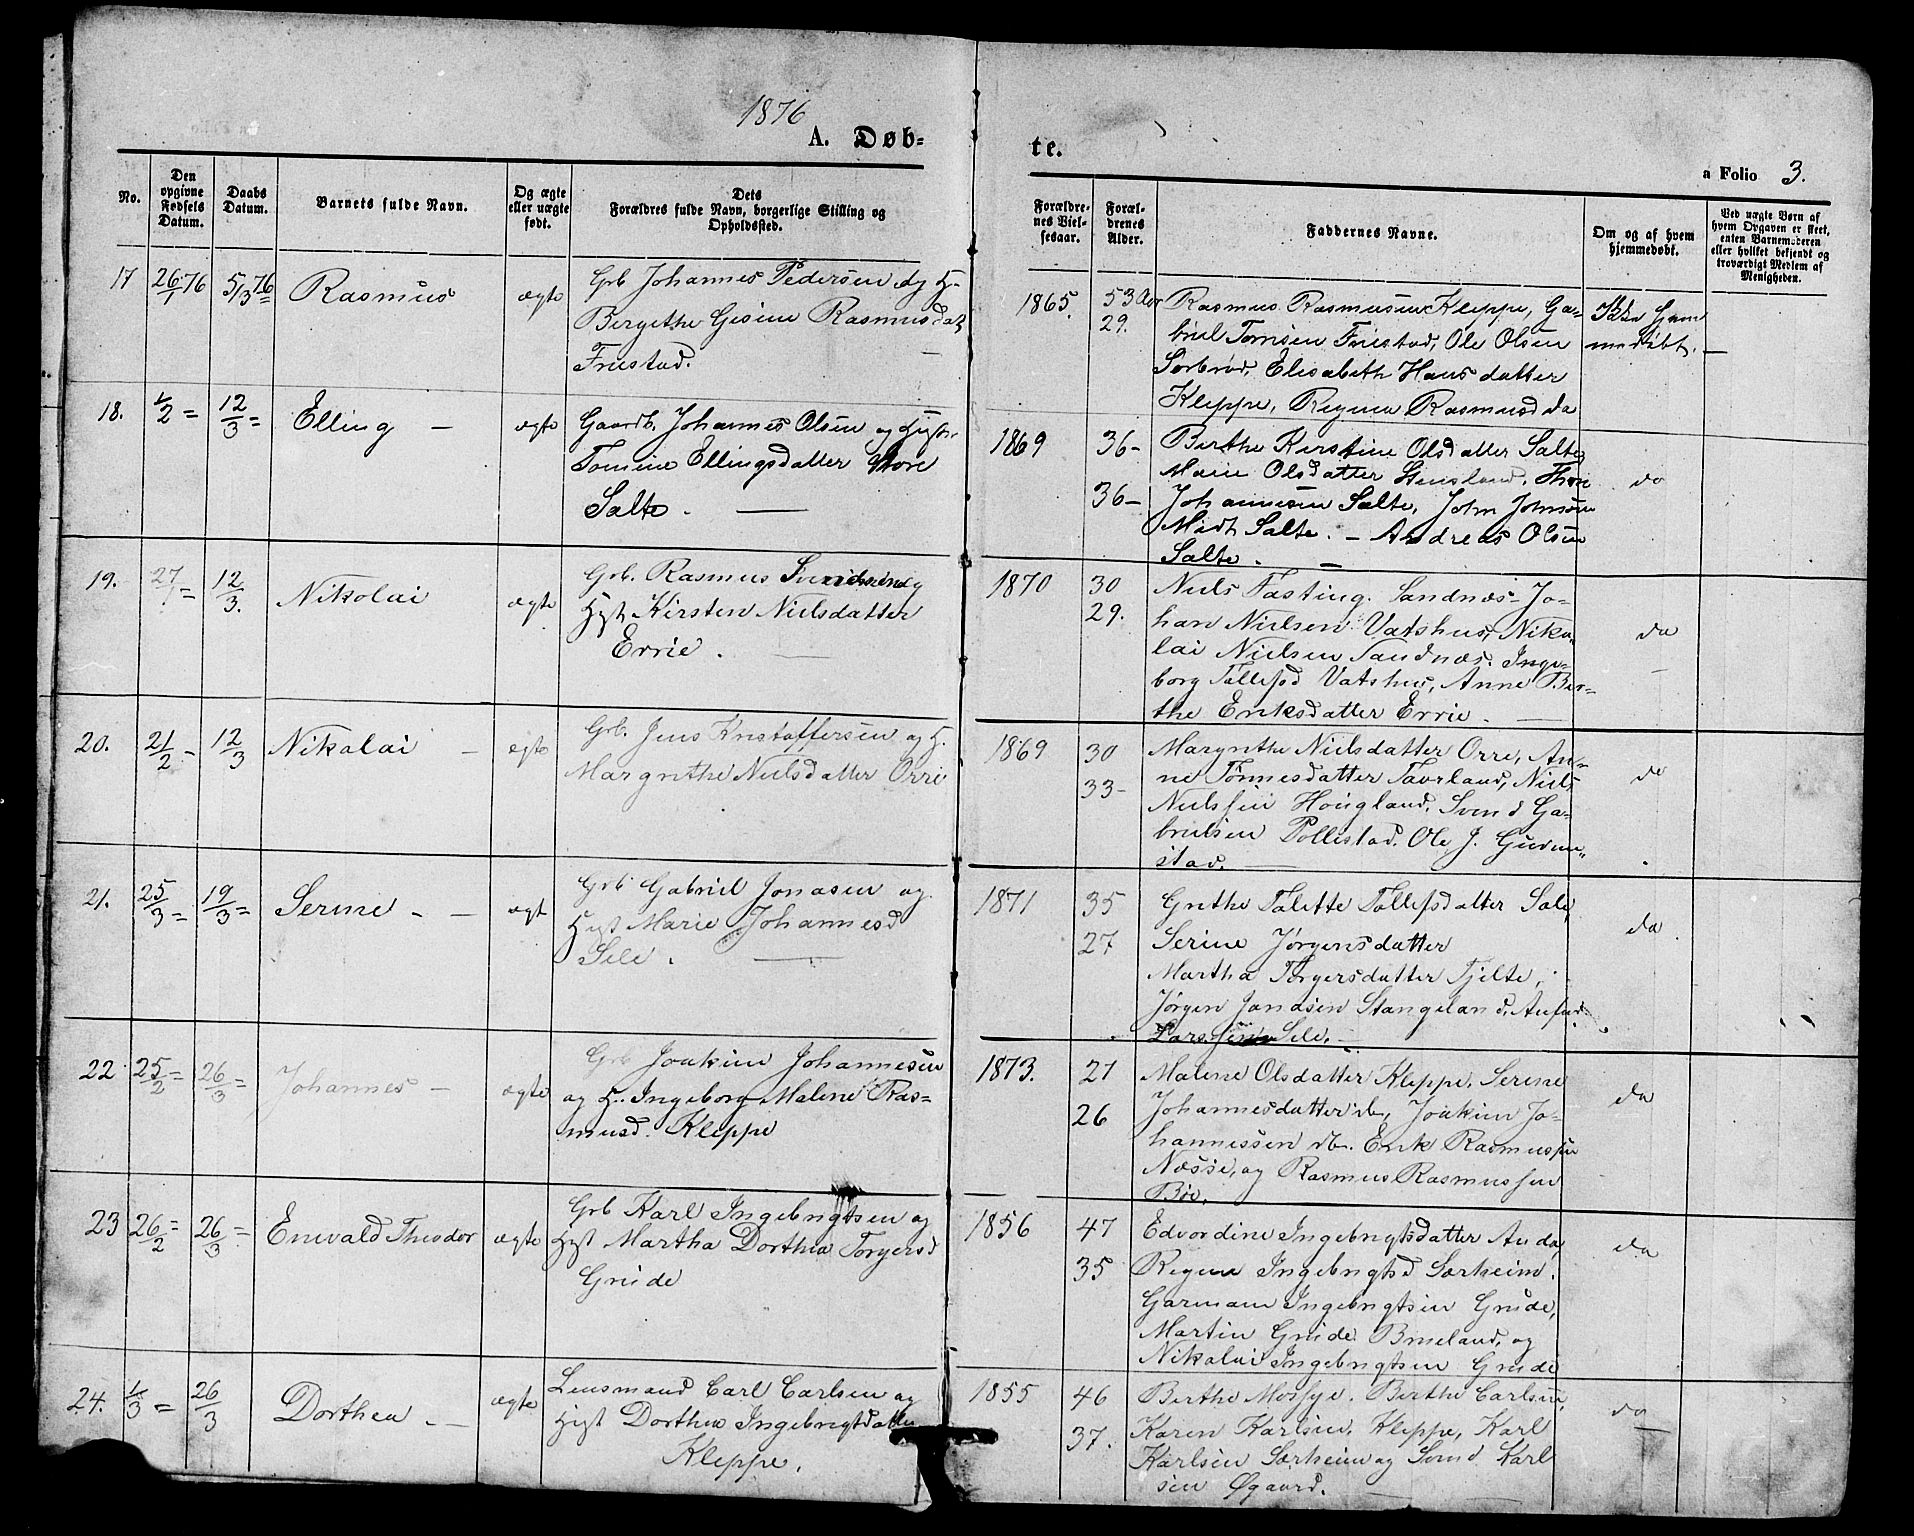 1876
A. Døb-
te.
a Folio 3.
No.
Den opgivne Fødsels Datum.
Daabs Datum.
Barnets fulde Navn.
Og ægte eller uægte født.
Dets Forældres fulde Navn, borgerlige Stilling og Opholdssted.
Forældrenes Vielsesaar.
Forældrenes Alder.
Faddernes Navne.
Om og af hvem hjemmedøbt.
Ved uægte Børn af hvem Opgaven er skeet, enten Barnemoderen eller hvilket bekjendt og troværdigt Medlem af Menigheden.
17 26/1 76 5/3 76 Rasmus ægte Grb Johannes Pedersen og H.
Bergethe Gesine Rasmusdat
Friestad.
1865. 53 Aar
29.
Rasmus Rasmussen Kleppe, Ga-
briel Tornsen Friestad, Ole Olsen
Sorbrød, Elisabeth Hansdatter
Kleppe, Regine Rasmusd da
Ikke hjem
medøbt. —
18. 1/2 = 12/3 = Elling — ægte Gaardb. Johannes Olsen og Hustr
Tomine Ellingsdatter Store
Salte. —
1869 36-
36-
Birthe Kirstine Olsdatter Salte
Marie Olsdatter Stensland,
Johannesen Salte, John Johnsen
Midt Salte. - Andreas Olsen
Salte. —
do
19. 27/1 = 12/3. Nikolai ægte Grb. Rasmus Svendsen og
Hust Kirsten Nielsdatter
Errie. —
1870 30
29.
Niels Fasting. Sandnæs- Jo-
han Nielsen Vatshus, Niko-
lai Nielsen Sandnæs. Inge-
borg Tollefsd Vatshus, Anne Ber-
the Eriksdatter Errie. —
do
20. 21/2 - 12/3 Nikolai — egte Grb. Jens Kristoffersen og H.
Margrethe Nielsdatter Orre
1869 30
33-
Margrethe Nielsdatter Orre, An-
ne Tønnesdatter Tavrland, Niels
Nielssen Hougland, Svend Ga-
brielsen Pollestad. Ole J. Gudme-
stad. —
do
21. 25/3 = 19/3 = Serine - — ægt Grb Gabriel Jonasen og
Hust Marie Johannesd
Sele. —
1871 35
27
Grethe Talette Tollefsdatter Sele,
Serine Jørgensdatter
Martha Torgersdatter Tjelte,
Jørgen Jonasen Stangeland,
Larssen Sele. —
da
22 25/2 = 26/3 = Johannes — ægte Grb Joakim Johannesen
og H. Ingeborg Malene Ras-
musd. Kleppe
1873. 27
26
Malene Olsdatter Kleppe. Serine
Johannesdatter ib, Joakim Jo-
hannessen ib. Erik Rasmussen
Næsse, og Rasmus Rasmussen
Bøe.
da
23 26/2 = 26/3 = Enevald Theodor ægte Grb Karl Ingebrigtsen og
Hust Martha Dorthea Torgersd
Grude
1856 47
35
Edvardine Ingebrigtsdatter Anda,
Regine Ingebrigtsd Sørheim.
Garmann Ingebrigtsen Grude,
Martin Grude Brueland, og
Nikolai Ingebrigtsen Grude
da
24. 1/3 = 26/3 Dorthea - — ægte Lensmand Carl Carlsen og
Hust Dorthea Ingebrigtdatter
Kleppe.
1855 46
37.
Berthe Mossige. Berthe Carlsen,
Karen Karlsen, Kleppe, Karl
Karlsen Sørheim og Svend Karl
sen Øgaard. —
do